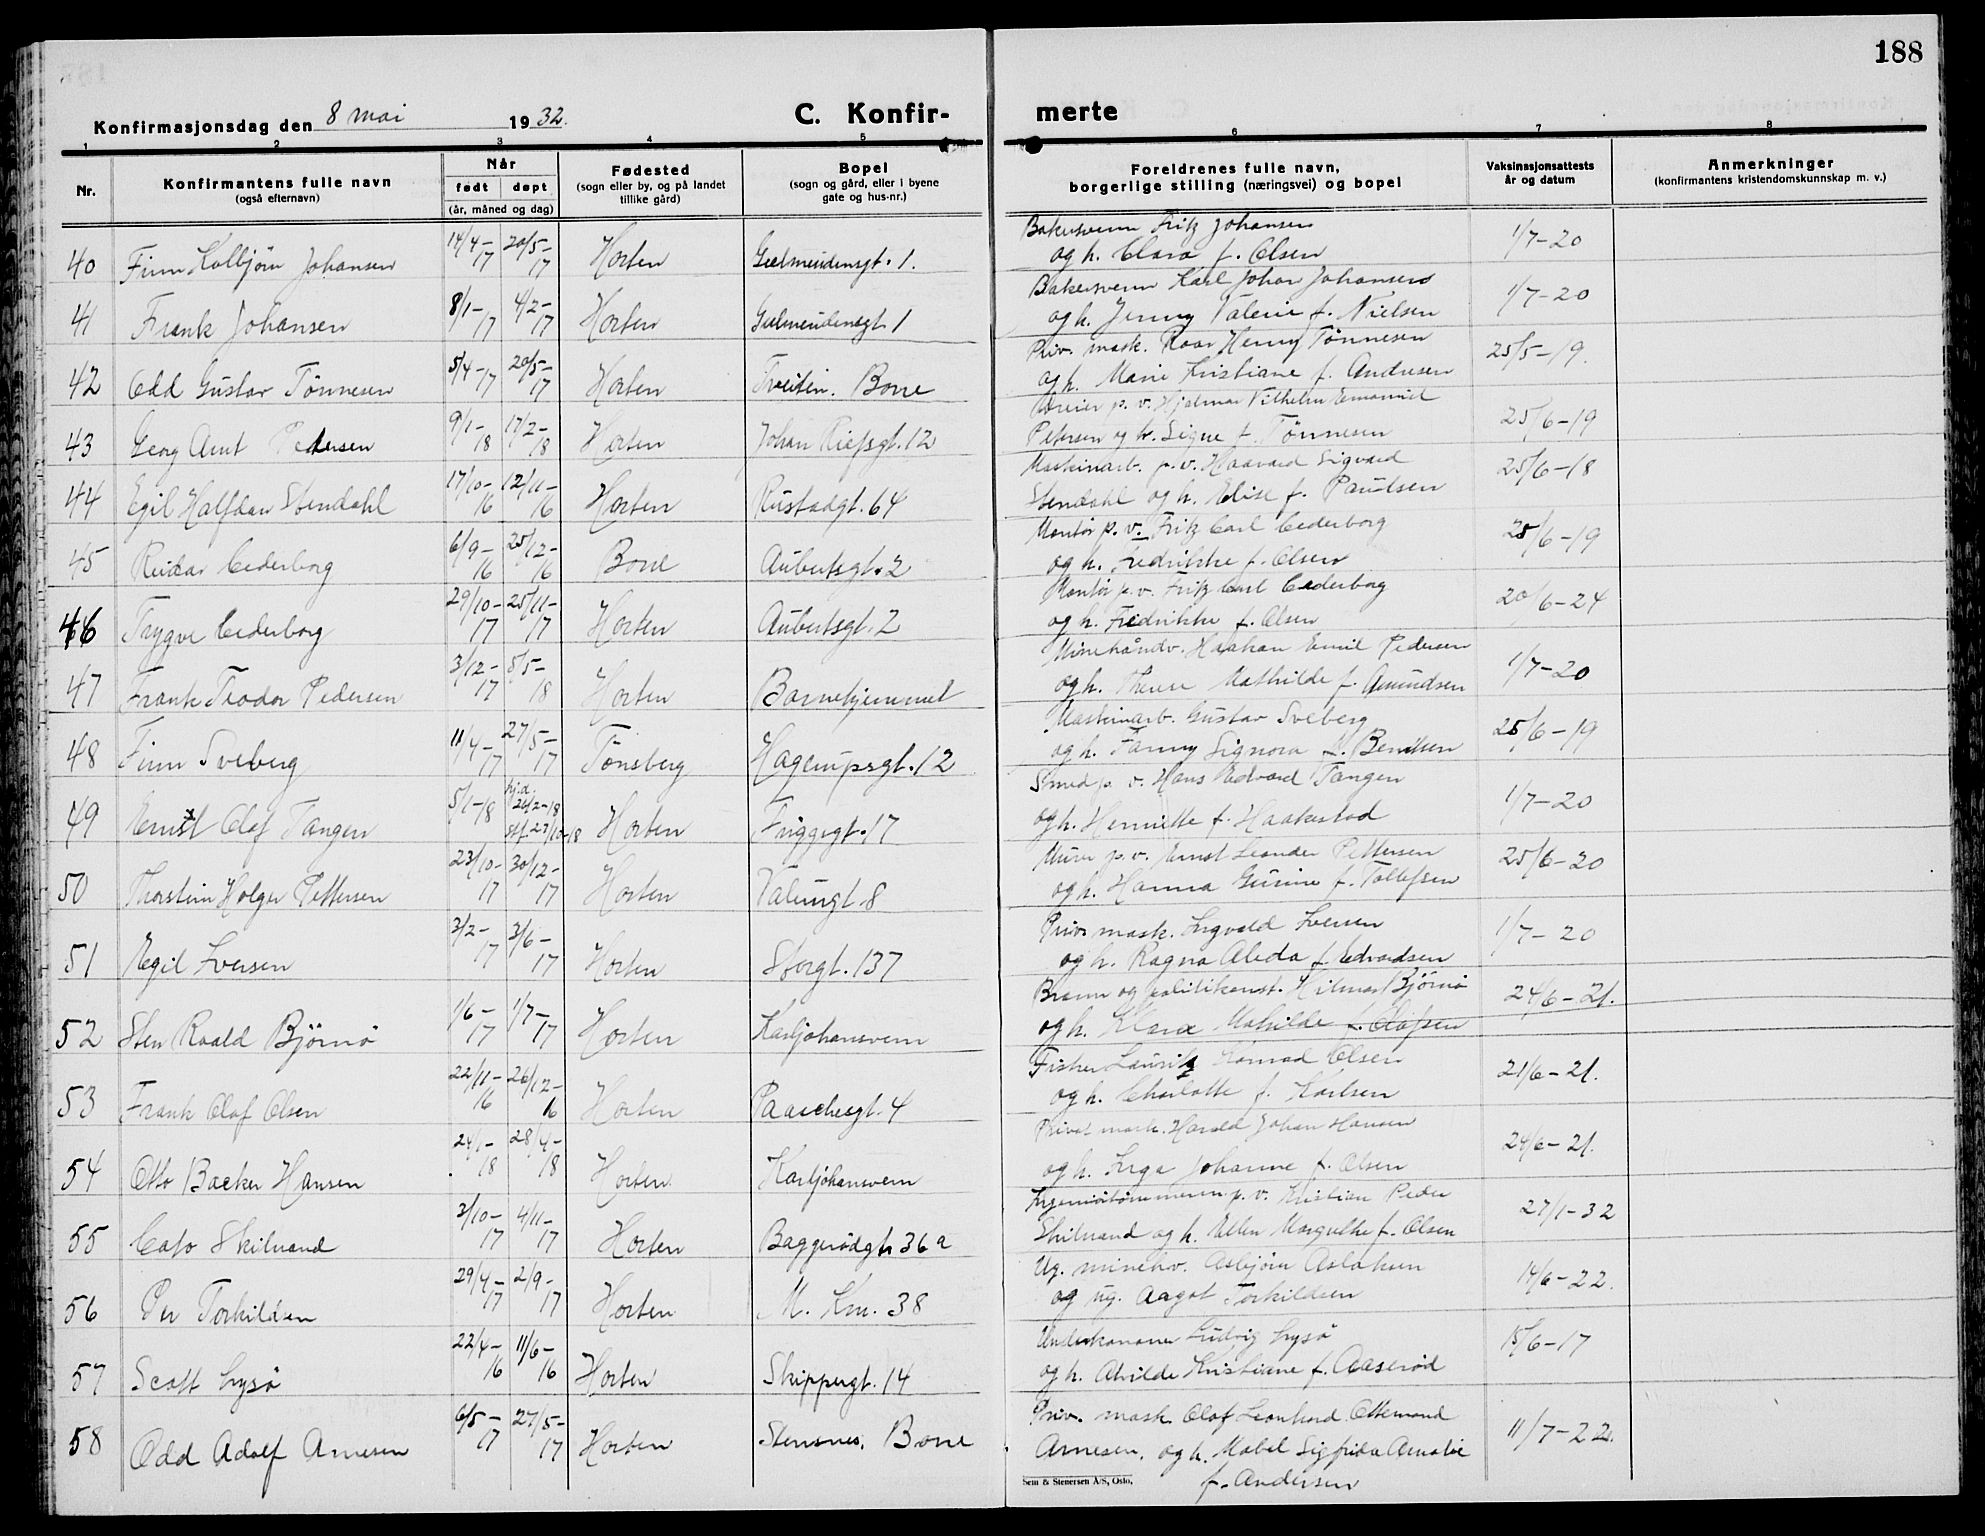 188
Konfirmasjonsdag den 8 mai 1932.
C. Konfir-
merte
1 2 3 4 5 6 7 8
Nr.
Konfirmantens fulle navn
(også efternavn)
Når
født døpt
(år, måned og dag)
Fødested
(sogn eller by, og på landet
tillike gård)
Bopel
(sogn og gård, eller i byene
gate og hus-nr.)
Foreldrenes fulle navn,
borgerlige stilling (næringsvei) og bopel
Vaksinasjonsattests
år og datum
Anmerkninger
(konfirmantens kristendomskunnskap m. v.)
40 Finn Kolbjörn Johansen 14/4-17 20/5-17 Horten Gulmeudensgt. 1.
Bakersvenn Fritz Johansen
og h. Clara f. Olsen
1/7-20
41 Frank Johansen 8/1-17 4/2-17 Horten 1
Bakersvenn Karl Johan Johansen
og h. Jenny Valerie f. Nielsen
1/7-20
42 Odd Gustav Tönnesen 5/4-17 20/5-17 Horten Tveiten. Borre
Priv. mask. Roar Henry Tönnesen
og h. Marie Kristiane f. Andresen
25/5-19.
43 Georg Arnt Pedersen 9/1-18 17/2-18 Horten Johan Riefsgt. 12
p. v. Hjalmar Vilhelm Emanuel
Petersen og h. Signe f. Tönnesen
25/6-19
44 Egil Halfdan Stendahl 17/10-16 12/11-16 Horten Rustadgt. 64
Maskinarb. p. v. Haavard Sigvard
Stendahl og h. Elise f. Paulsen
25/6-18
45 Reidar Cederborg 6/9-16 25/12-16 Borre Aubertsgt. 2
Montör p. v. Fritz Carl Cederborg
og h. Fredrikke f. Olsen
25/6-19
46 Trygve Cederborg 29/10-17 25/11-17 Horten Aubertsgt. 2
Montör p. v. Fritz Carl Cederborg
og h. Fredrikke f. Olsen
20/6-24
47 Frank Teodor Pedersen 3/12-17 5/5-18 Horten Barnehjemmet
Minehåndv. Haakon Emil Pedersen
og h. Therese Mathilde f. Amundsen
1/7-20
48 Finn Sveberg 11/4-17 27/5-17 Tönsberg Hagerupsgt. 12
Maskinarb. Gustav Sveberg
og h. Fanny Signora f. Bendtsen
25/6-19
49 Ernst Olaf Tangen 5/1-18 hj.d. 26/2-18 Horten Friggsgt. 17
Smed p. v. Hans Edvard Tangen
og h. Henriette f. Haakestad
1/7-20
50 Thorstein Holger Pettersen 23/10-17 30/12-17 Horten Valeurgt. 8
Murer p. v. Ernst Leander Pettersen
og h. Hanna Gurine f. Tollefsen
25/6-20
51 Egil Iversen 3/2-17 3/6-17 Horten Storgt. 137
Priv. mask. Ingvald Iversen
og h. Ragna Alida f. Edvardsen
1/7-20
52 Sten Roald Björnö 1/6-17 1/7-17 Horten Karljohansvern
Brann og politikonst. Hilmar Björnö
og h. Klara Mathilde f. Olafsen
24/6-21.
53 Frank Olaf Olsen 22/11-16 26/12-16 Horten Paaschesgt. 4
Fisker Lauritz Konrad Olsen
og h. Charlotte f. Karlsen
21/6-21.
54 Otto Backer Hansen 24/1-18 28/4-18 Horten Karljohansvern
Privat mask. Harald Johan Hansen
og h. Inga Johanne f. Olsen
24/6-21.
55 Cato Skilnand 3/10-17 4/11-17 Horten Baggerödgt. 36 a
p. v. Kristian Peder
Skilnand og h. Ellen Margrethe f. Olsen
27/1-32
56 Per Torkildsen 29/4-17 2/9-17 Horten M. Km. 38
Ug. minehv. Asbjörn Aslaksen
og ug. Aagot Torkildsen
14/6-22.
57 Scott Lysö 22/4-16 11/6-16 Horten Skippergt. 14
Underkanoner Ludvig Lysö
og h. Alvilde Kristiane f. Aaseröd
15/6-17
58 Odd Adolf Arnesen 6/5-17 27/5-17 Horten Stensnes. Borre
Priv. mask. Olaf Leonhard Ottemand
Arnesen. og h. Mabel Sigfrida
f. Andersen
11/7-22.
Sem & Stenersen A/S, Oslo.